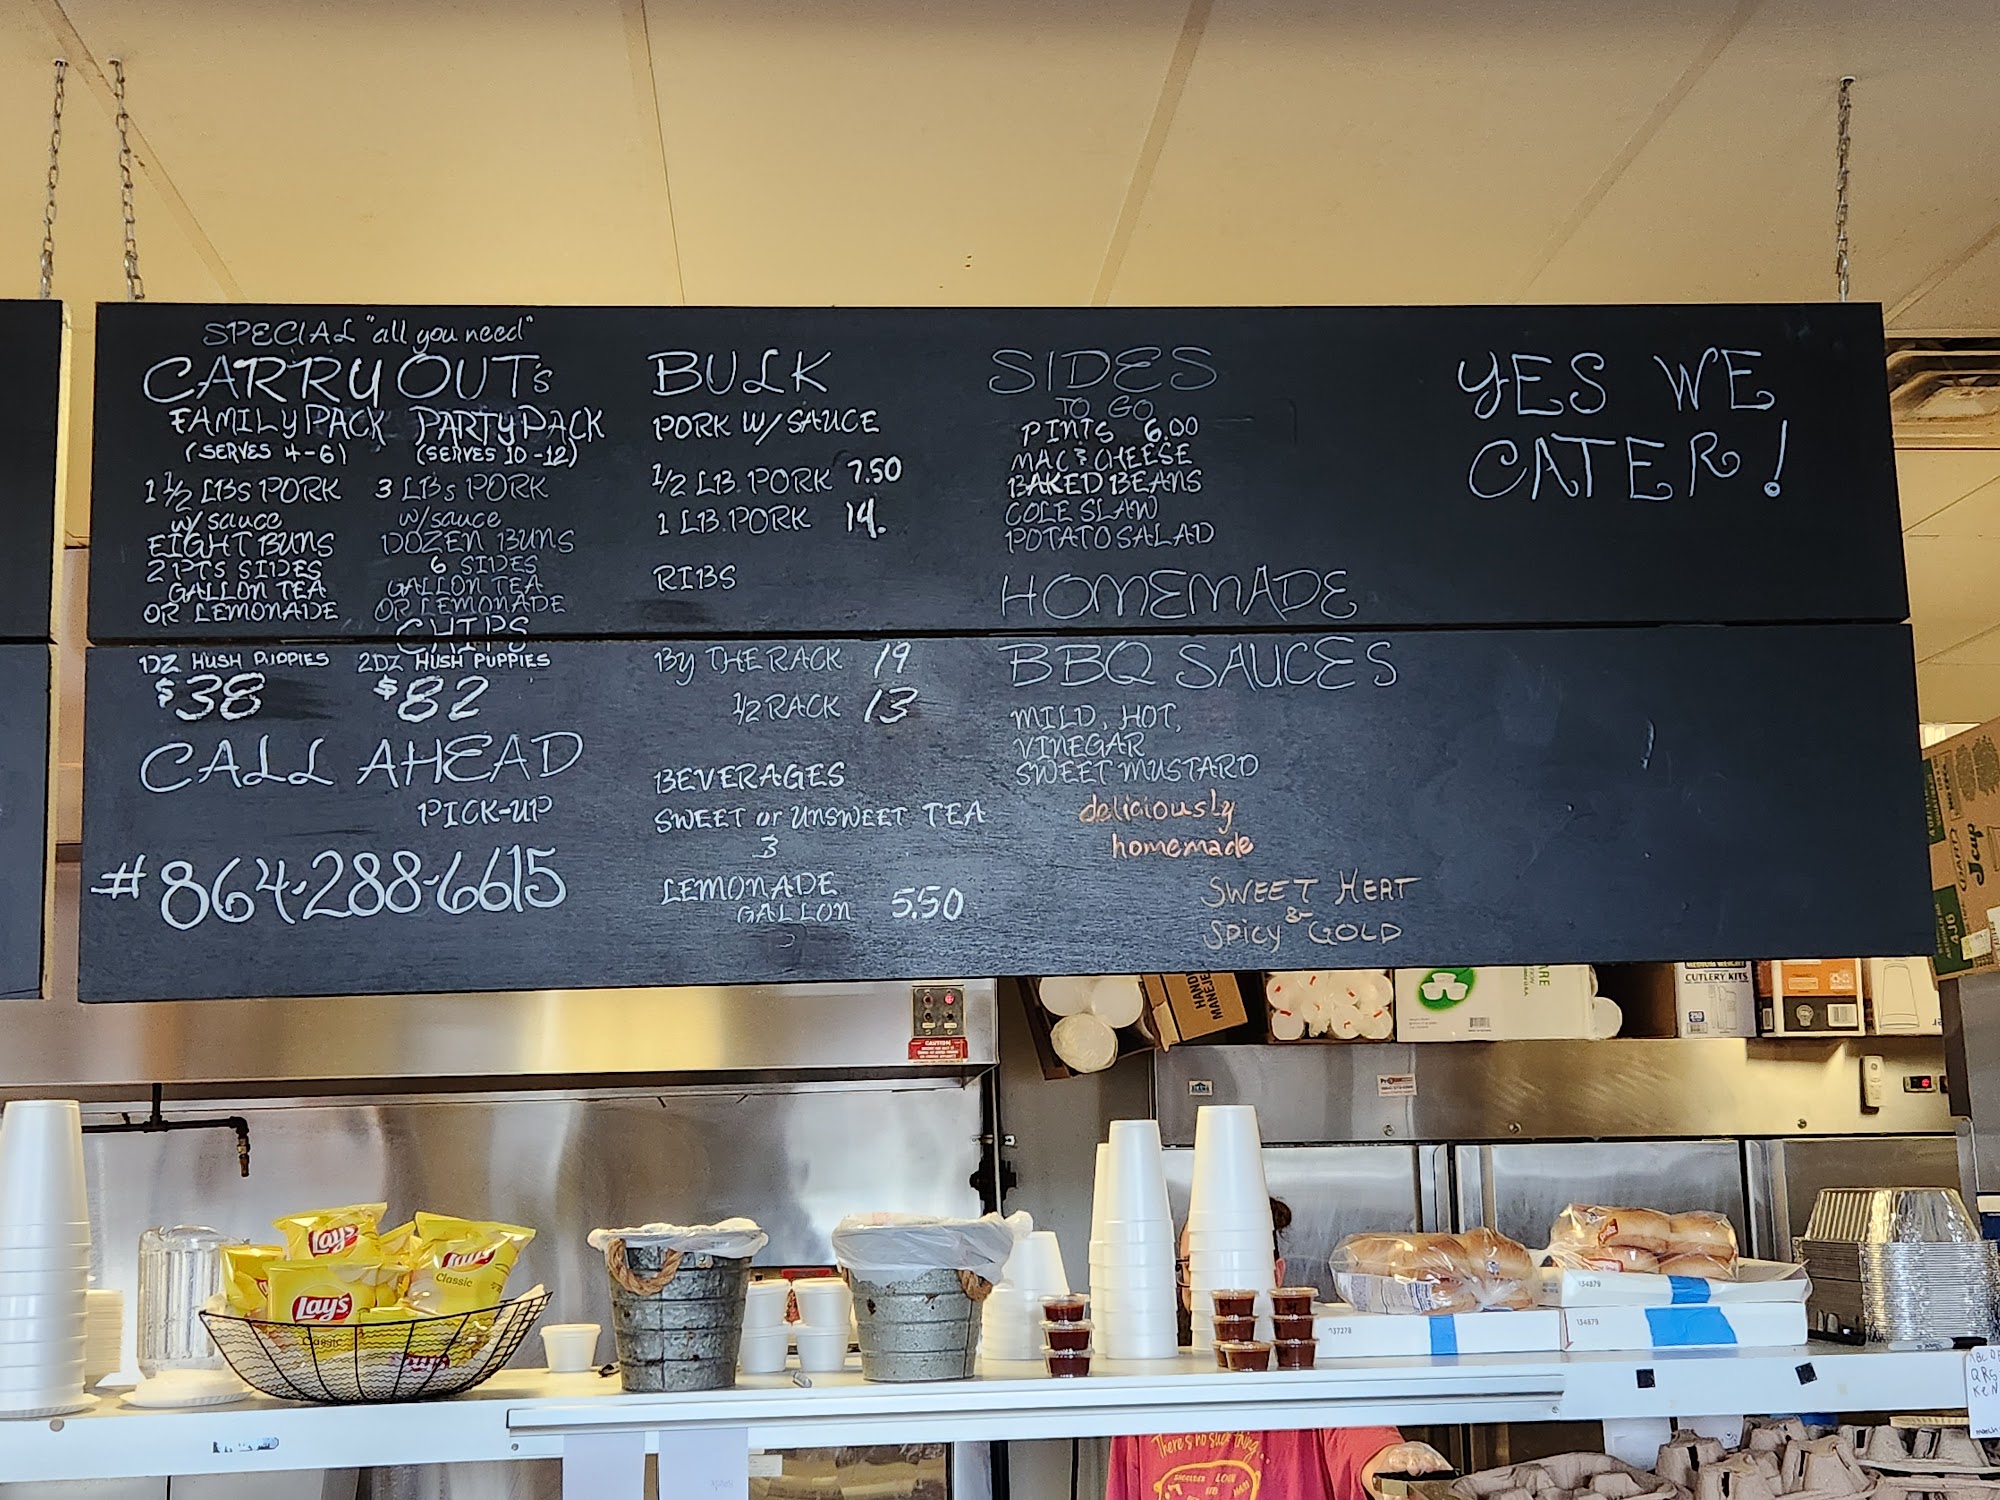 SPECIAL "all you need"
CARRY OUT's
FAMILY PACK
(SERVES 4-6)
1 1/2 LBS PORK
w/ sauce
EIGHT BUNS
2 PTS SIDES
GALLON TEA
OR LEMONADE
1DZ HUSH PUPPIES
$38
PARTY PACK
(SERVES 10-12)
3 LBs PORK
w/sauce
DOZEN BUNS
6 SIDES
GALLON TEA
OR LEMONADE
CHIPS
2DZ HUSH PUPPIES
$82
CALL AHEAD
PICK-UP
#864-288-6615
BULK
PORK W/ SAUCE
1/2 LB. PORK 7.50
1 LB. PORK 14.
RIBS
BY THE RACK 19
1/2 RACK 13
BEVERAGES
SWEET or UNSWEET TEA
3
LEMONADE
GALLON 5.50
SIDES
TO GO
PINTS 6.00
MAC & CHEESE
BAKED BEANS
COLE SLAW
POTATO SALAD
HOMEMADE
BBQ SAUCES
MILD, HOT,
VINEGAR
SWEET MUSTARD
deliciously
homemade
SWEET HEAT
&
SPICY GOLD
YES WE
CATER!
CUTLERY KITS
CAUTION
Lay's
Lay's
Classic
Lay's
Classic
137278
134879
134879
There's no such thing..
SHOULDER LOIN
RIB HAM